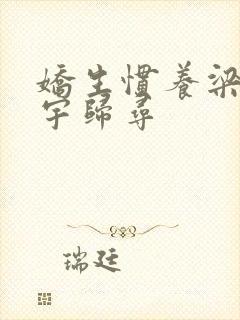 嬌生慣養梁
宇歸尋
瑞廷